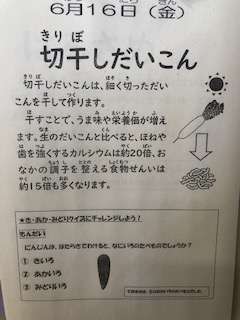 6月16日（金）
切干しだいこん
切干しだいこんは、細く切っただい
こんを干して作ります。
干すことで、うま味や栄養価が増え
ます。生のだいこんと比べると、ほねや
歯を強くするカルシウムは約20倍、お
なかの調子を整える食物せんいは
約15倍も多くなります。
★き・あか・みどりクイズにチャレンジしよう！
もんだい
にんじんは、はたらきでわけると、なにいろのたべものでしょうか？
① きいろ
② あかいろ
③ みどりいろ